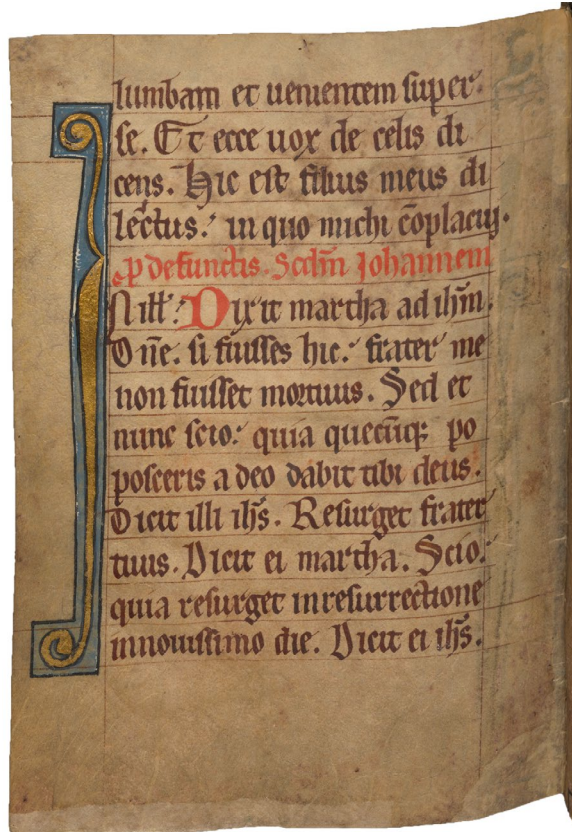 lumbam et uenientem super
se. Et ecce uox de celis di
cens. Hic est filius meus di
lectus. in quo michi c̄oplacuit.
p̱ defunctis. Scd̄m Iohannem
N ill̄. Dixit martha ad ih̄m.
Dn̄e. si fuisses hic. frater me
non fuisset mortuus. Sed et
nunc scio. quia quecūq; po
posceris a deo dabit tibi deus.
Dicit illi ih̄s. Resurget frater
tuus. Dicit ei martha. Scio.
quia resurget inresurrectione
innouissimo die. Dicit ei ih̄s.